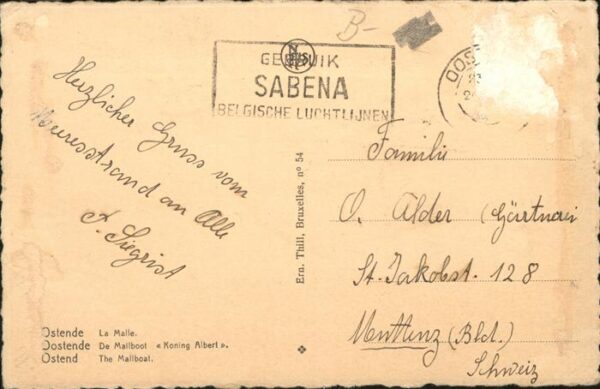 B-
GEBRUIK
SABENA
BELGISCHE LUCHTLIJNEN
Herzlicher Gruss vom
Meeresstrand an Alle
Siegrist
Ern. Thill, Bruxelles, nº 54
Familie
O. Alder (Gärtnerei
St. Jakobst. 128
Muttenz (Bld.)
Schweiz
Ostende La Malle.
Oostende De Mailboot « Koning Albert ».
Ostend The Mailboat.